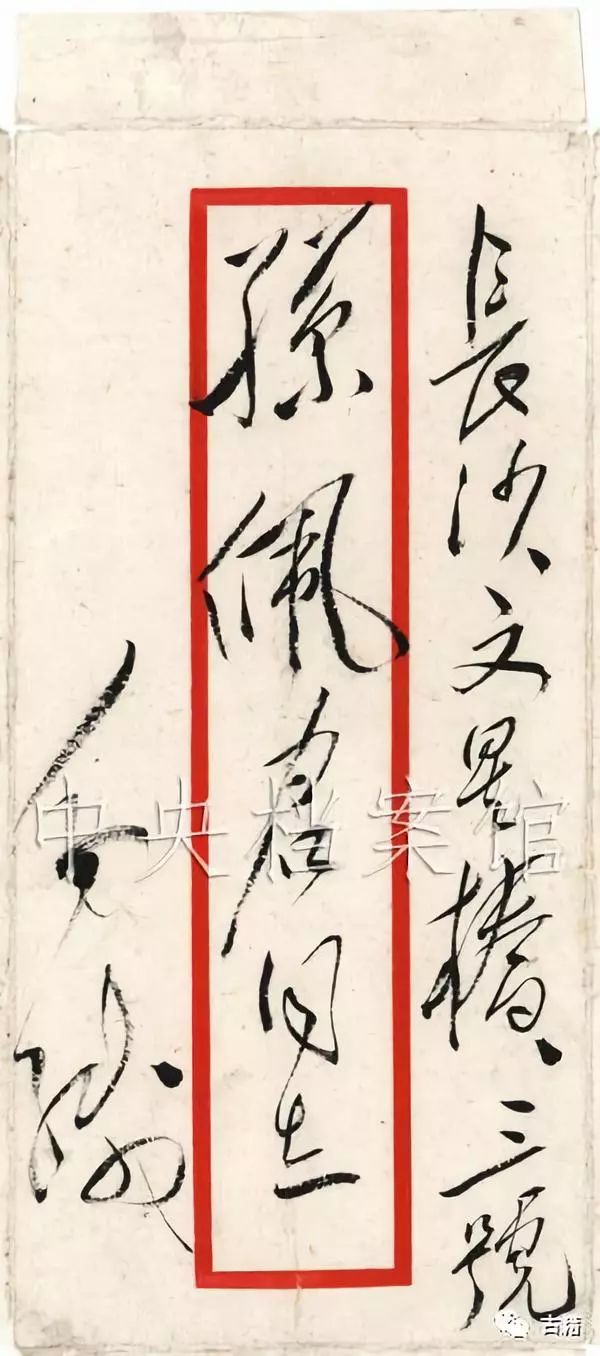 長沙文星橋三號
孫佩君同志
緘
中央档案馆
古籍